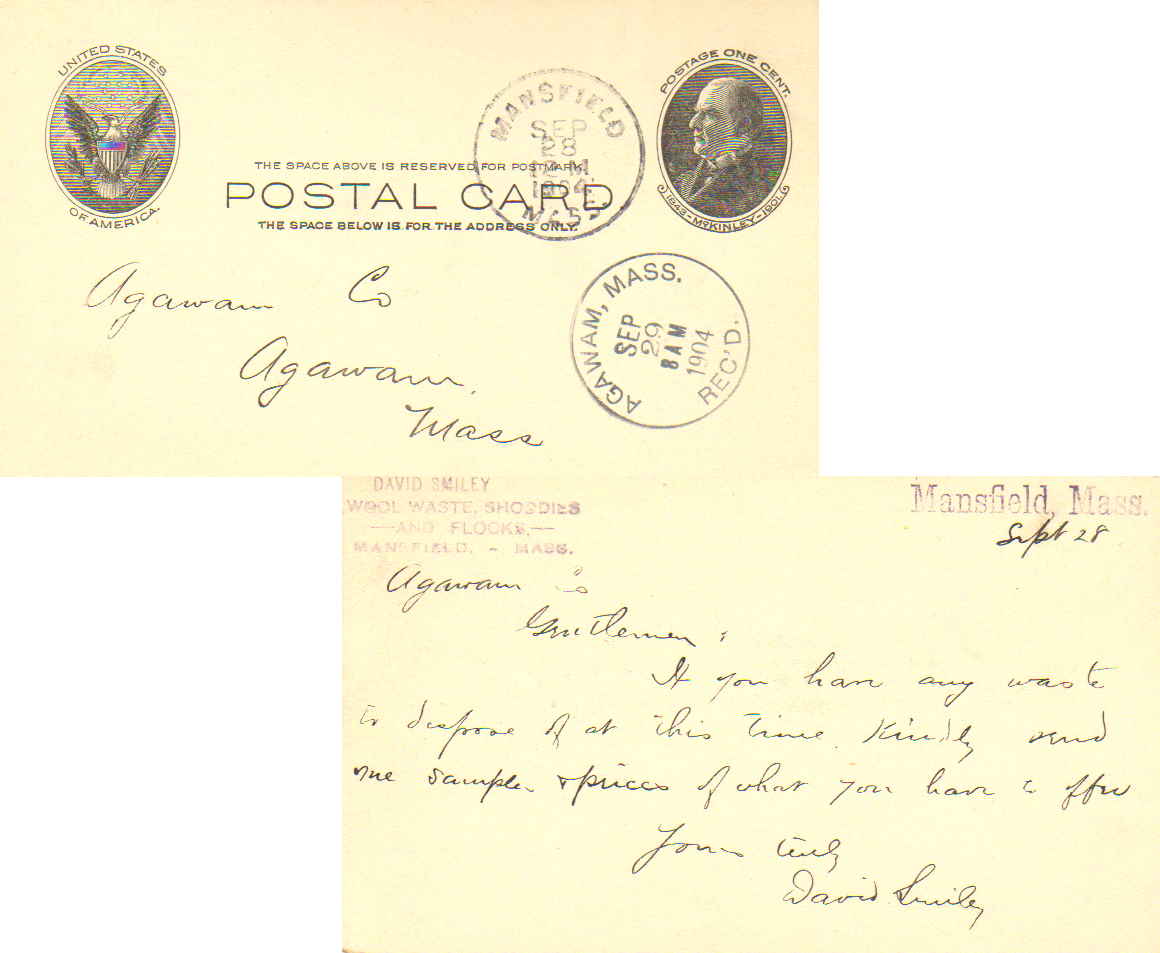 UNITED STATES
OF AMERICA.
POSTAGE ONE CENT.
1843-McKINLEY-1901
MANSFIELD
SEP
28
12-M
1904
MASS.
THE SPACE ABOVE IS RESERVED FOR POSTMARK.
POSTAL CARD.
THE SPACE BELOW IS FOR THE ADDRESS ONLY.
Agawam Co
Agawam,
Mass
AGAWAM, MASS.
SEP
29
8 AM
1904
REC'D.
DAVID SMILEY
WOOL WASTE, SHODDIES
—AND FLOCKS,—
MANSFIELD, - MASS.
Mansfield, Mass.
Sept 28
Agawam Co
Gentlemen:
If you have any waste
to dispose of at this time. Kindly send
me samples & prices of what you have to offer
Yours truly
David Smiley